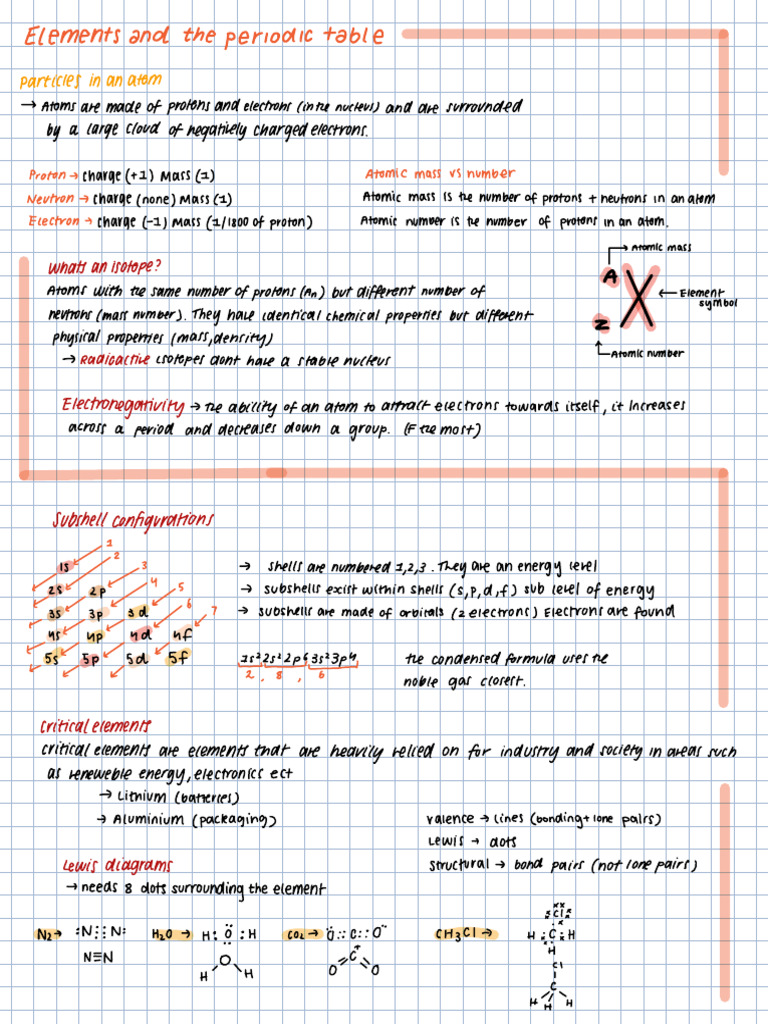 Elements and the periodic table
particles in an atom
→ Atoms are made of protons and electrons (in the nucleus) and are surrounded
by a large cloud of negatively charged electrons.
Proton → charge (+1) Mass (1)
Neutron → charge (none) Mass (1)
Electron → charge (-1) Mass (1/1800 of proton)
Atomic mass vs number
Atomic mass is the number of protons + neutrons in an atom
Atomic number is the number of protons in an atom.
→ Atomic mass
A
X
← Element
symbol
Z
→ Atomic number
Whats an isotope?
Atoms with the same number of protons (An) but different number of
neutrons (mass number). They have identical chemical properties but different
physical properties (mass, density)
→ Radioactive isotopes dont have a stable nucleus
Electronegativity → the ability of an atom to attract electrons towards itself, it increases
across a period and decreases down a group. (F the most)
Subshell configurations
1
1s 2
2s 2p 3
3s 3p 3d 4 5
4s 4p 4d 4f 6 7
5s 5p 5d 5f
→ shells are numbered 1,2,3. They are an energy level
→ subshells exist within shells (s,p,d,f) sub level of energy
→ subshells are made of orbitals (2 electrons) Electrons are found
1s² 2s² 2p⁶ 3s² 3p⁴
2, 8, 6
the condensed formula uses the
noble gas closest.
Critical elements
Critical elements are elements that are heavily relied on for industry and society in areas such
as reneweble energy, electronics ect
→ Lithium (batteries)
→ Aluminium (packaging)
valence → lines (bonding + lone pairs)
Lewis → dots
structural → bond pairs (not lone pairs)
Lewis diagrams
→ needs 8 dots surrounding the element
N₂ → :N⋮⋮N:
N≡N
H₂O → H : O : H
O
H H
CO₂ → O :: C :: O
C
O O
CH₃Cl → Cl
H C H
H
Cl
C
H H H